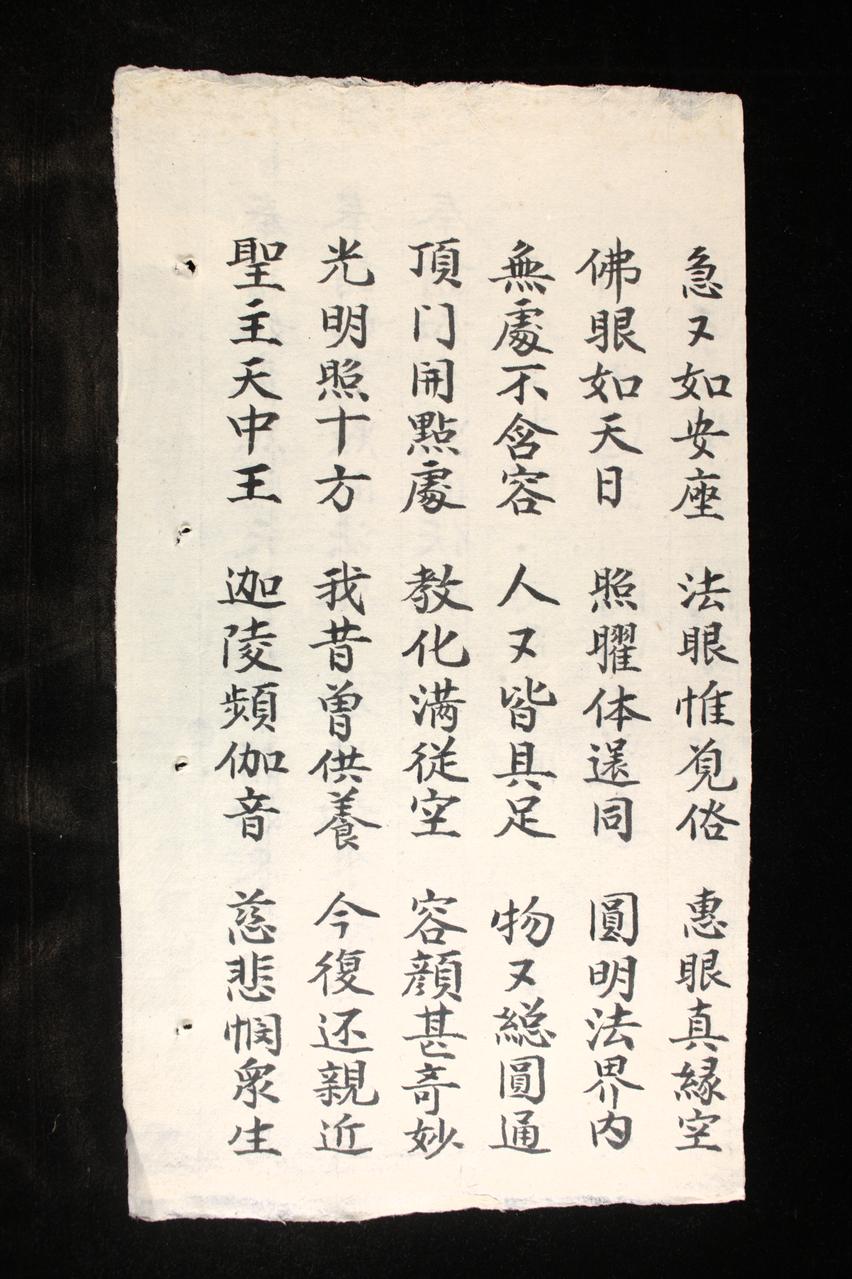 急又如安座　法眼惟覓俗　惠眼真緣空
佛眼如天日　照曜体還同　圓明法界内
無處不含容　人又皆具足　物又総圓通
頂门開點處　教化满従空　容顔甚奇妙
光明照十方　我昔曾供養　今復还親近
聖主天中王　迦陵頻伽音　慈悲悯衆生